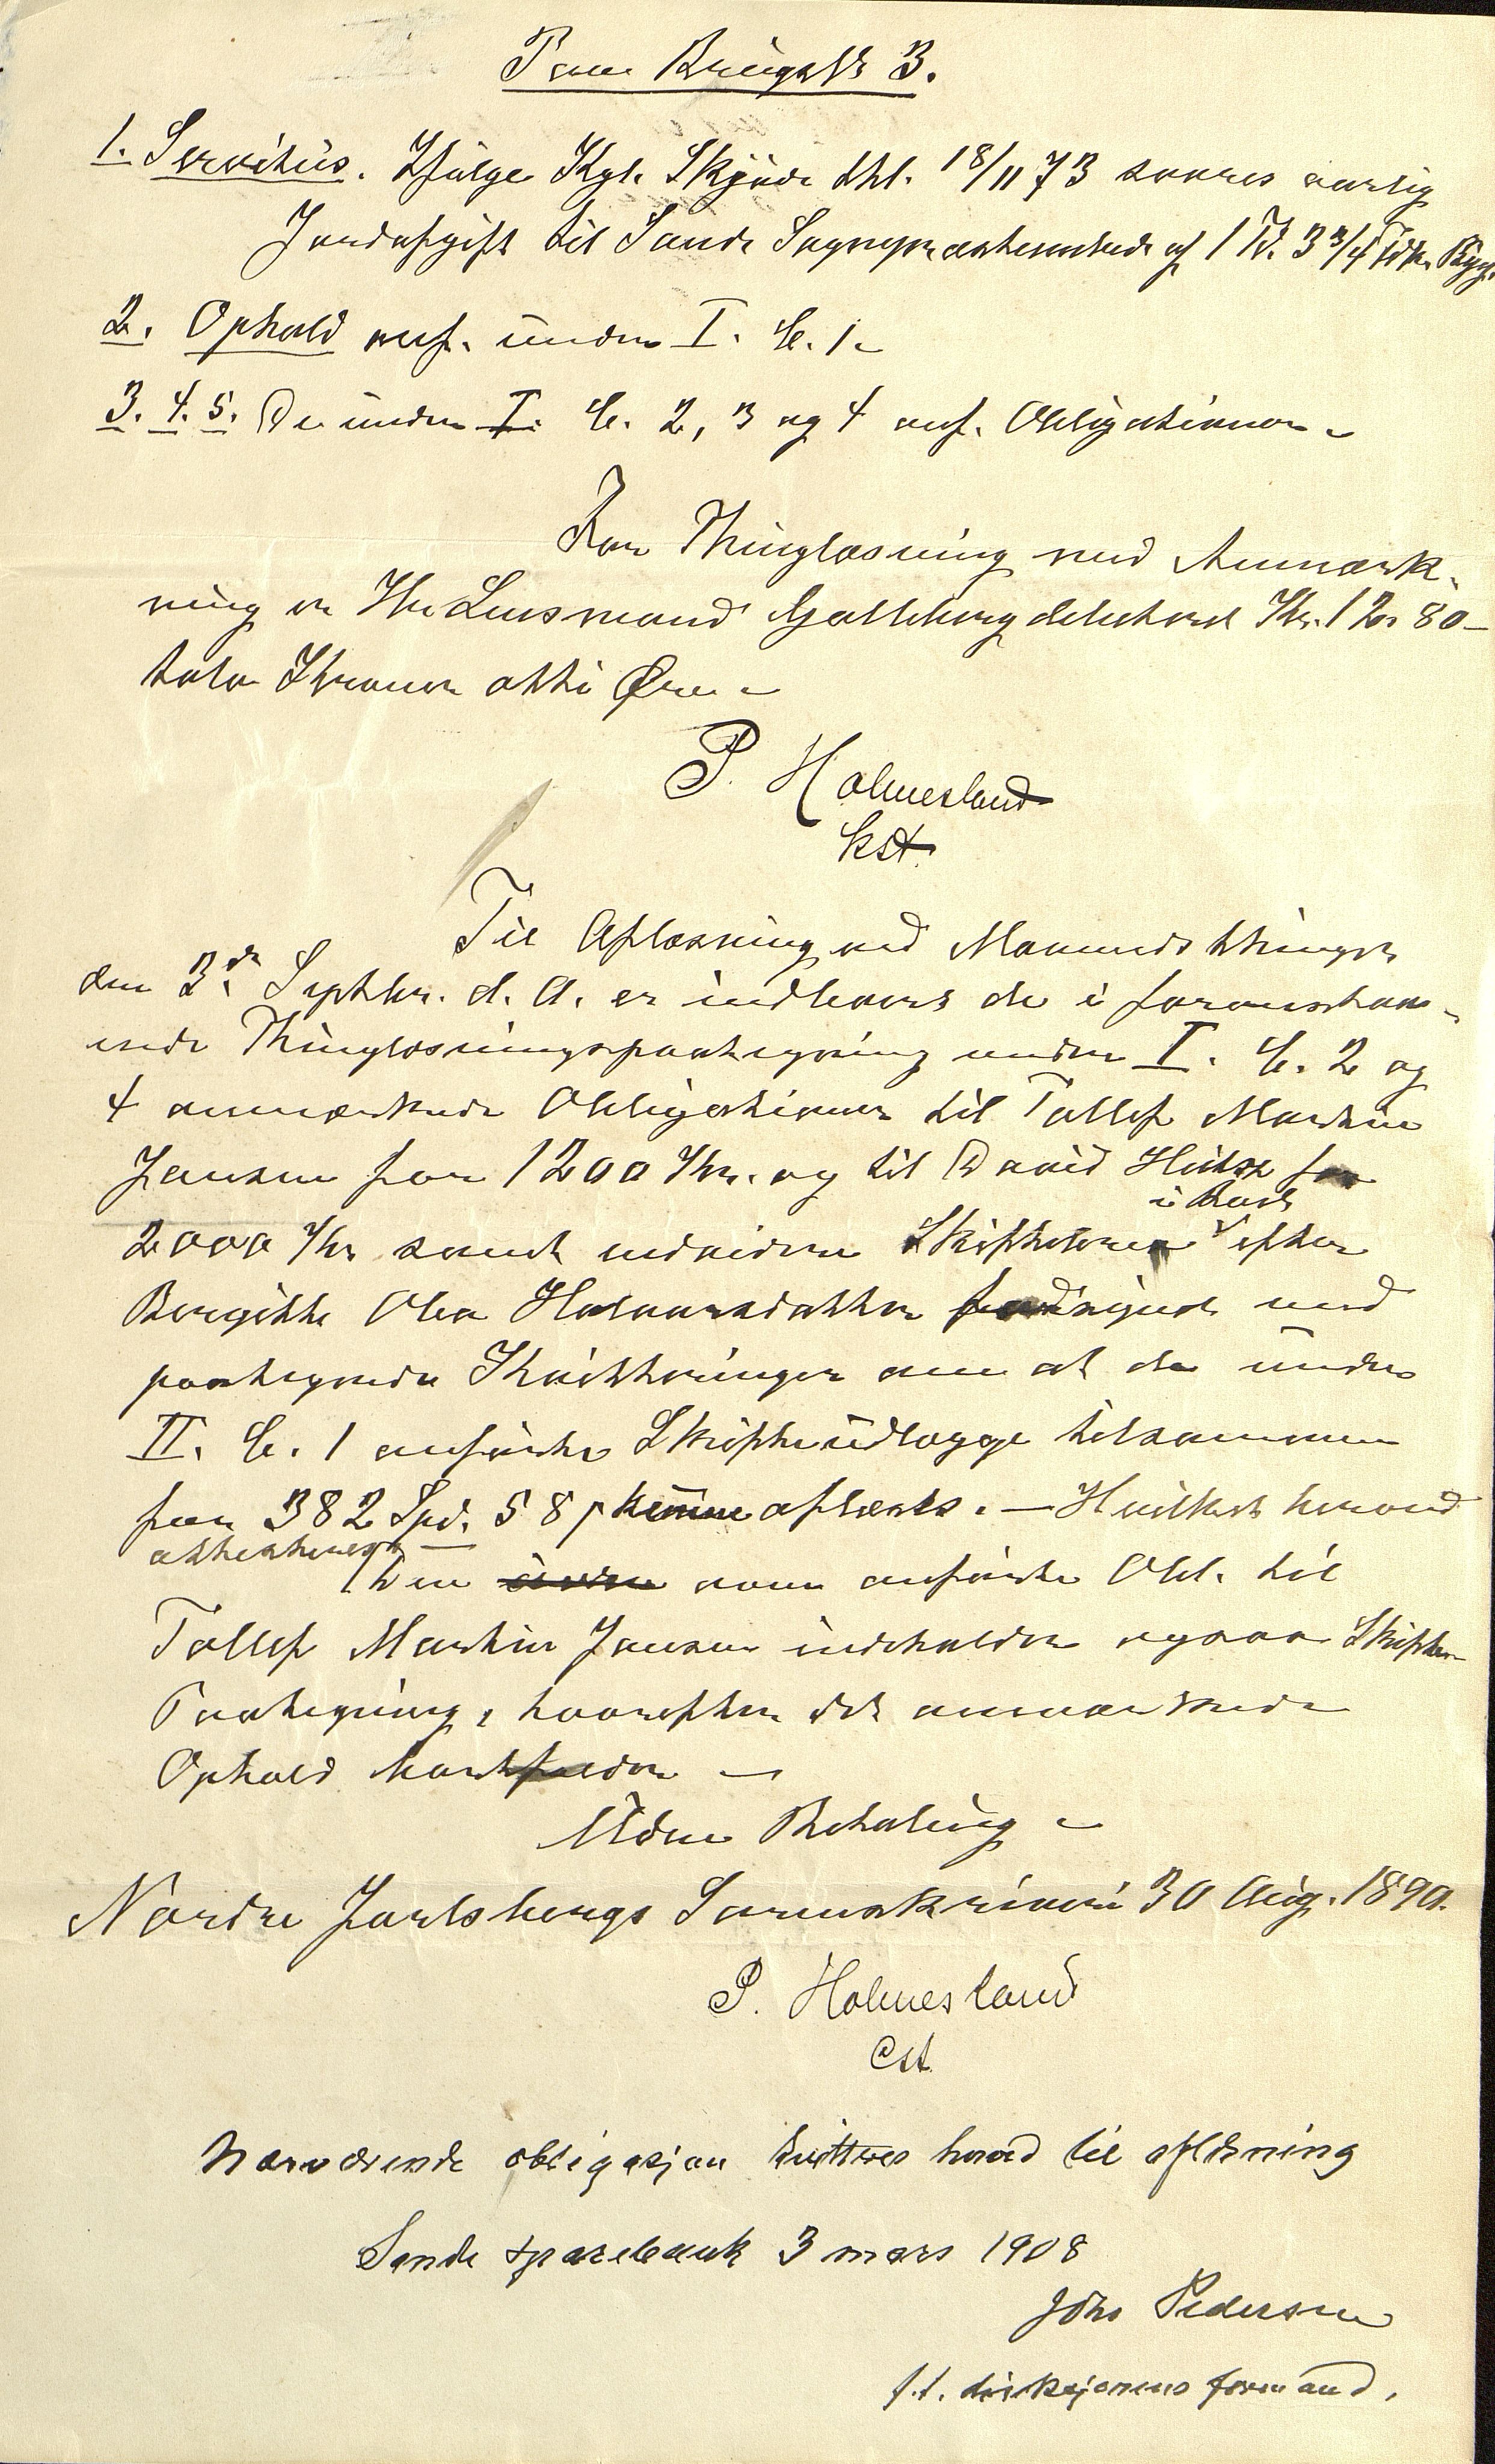 Paa Brugsk 3.
1. Servitus. Ifølge Kgl. Skjøde thl. 18/11 73 svares aarlig
Jordafgift til Sande Sognepræsteembede af 1 Td. 3 3/4 Fdk. Byg.
2. Ophold anf. under I. C. 1.
3. 4. 5. De under I. C. 2, 3 og 4 anf. Obligationer.
For Thinglæsning med Anmærk-
ning er Hr Lensmand Galleberg debiteret Kr. 12. 80 -
tolv Kroner otti Øre.
P. Holmesland
kst.
Til Aflæsning ved Maanedsthinget
den 3de Septbr. d. A. er indleveret de i foranstaa-
ende Thinglæsningspaategning under I. C. 2 og
4 anmærkede Obligationer til Tollef Martin
Jansen for 1200 Kr. og til David Hvitsx for
2000 Kr samt endvidere Skiftebrev i Boet efter
Bergitte Olea Halvorsdatter forsynede med
paategnede Kvitteringer om at de under
II. C. 1 anførte Skifteudlægge tilsammen
for 382 Spd. 58 β kunne aflæses. — Hvilket herved
attesteres.
Den ovenn anførte Obl. til
Tollef Martin Jansen indeholder ogsaa Skifte-
Paategning, hvorefter det anmærkede
Ophold bortfalder —
Uden Betaling.
Nordre Jarlsbergs Sorenskriveri 30 Aug. 1890.
P. Holmesland
cst.
Nærværende obligasjon kvitteres herved til aflæsning
Sande sparebank 3 mars 1908
Johs Pedersen
f.t. direksjonens formand.